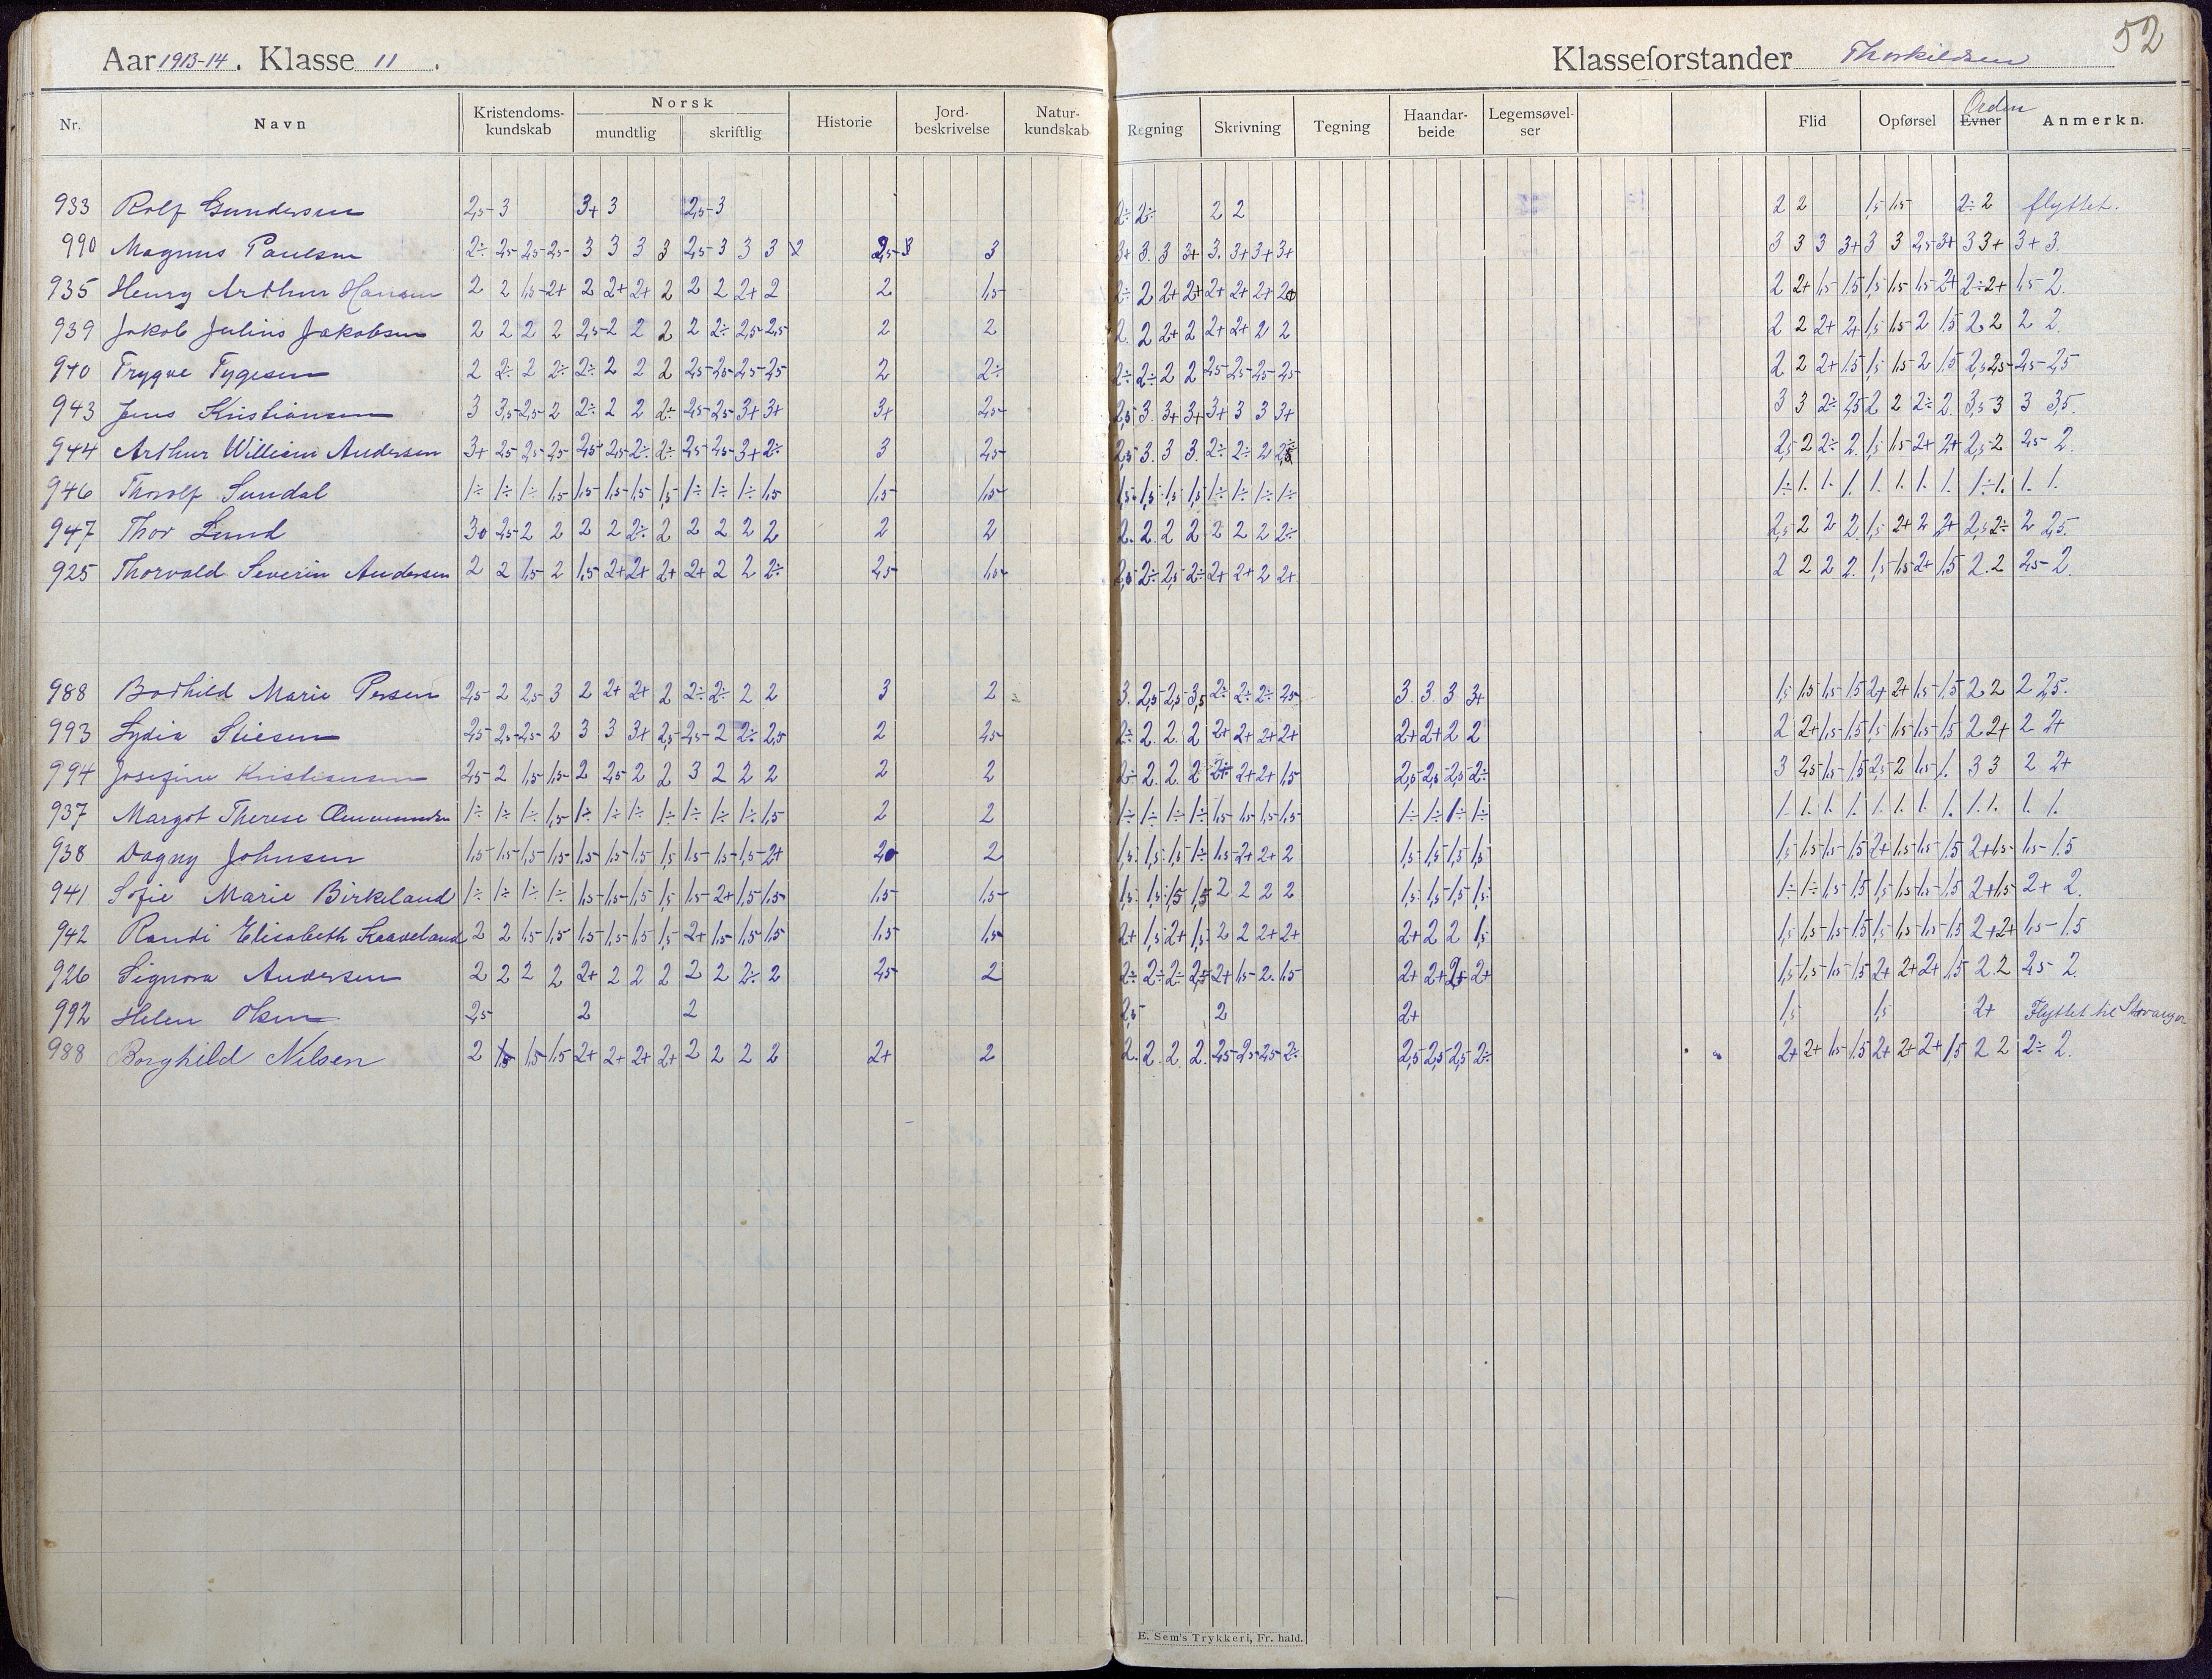 52
Aar 1913-14. Klasse 11. Klasseforstander Thorkildsen
Nr. Navn Kristendoms-kundskab Norsk mundtlig skriftlig Historie Jord-beskrivelse Natur-kundskab Regning Skrivning Tegning Haandar-beide Legemsøvel-ser Flid Opførsel Evner Orden Anmerkn.
933 Rolf Gundersen 2,5- 3 3+ 3 2,5- 3 2÷ 2÷ 2 2 2 2 1,5 1,5- 2÷ 2 flyttet.
990 Magnus Paulsen 2÷ 2,5- 2,5- 2,5- 3 3 3 3 2,5- 3 3 3 3 3+ 3. 3 3+ 3. 3+ 3+ 3+ 3 3 3 3+ 3 3 2,5 3+ 3 3+ 3+ 3.
935 Henry Arthur 2 2 1,5- 2+ 2 2+ 2+ 2 2 2 2+ 2 2 1,5- 2÷ 2 2+ 2+ 2+ 2+ 2+ 2 2+ 1,5- 1,5 1,5 1,5 1,5- 2+ 2÷ 2+ 1,5- 2.
939 Jakob Julius Jakobsen 2 2 2 2 2,5- 2 2 2 2 2÷ 2,5- 2,5 2 2 2. 2 2+ 2 2+ 2+ 2 2 2 2 2+ 2+ 1,5 1,5- 2 1,5 2. 2 2 2.
940 Trygve Tygesen 2 2÷ 2 2÷ 2÷ 2 2 2 2,5- 2,5- 2,5- 2,5 2 2÷ 2÷ 2÷ 2 2 2,5- 2,5- 2,5- 2,5- 2 2 2+ 1,5 1,5 1,5 2 1,5 2,5 2,5- 2,5- 2,5
943 Jens Kristiansen 3 3,5- 2,5- 2 2÷ 2 2 2÷ 2,5- 2,5- 3+ 3+ 3+ 2,5- 2,5 3. 3+ 3+ 3+ 3 3 3+ 3 3 2÷ 2,5 2 2 2÷ 2. 3,5 3 3 3,5.
944 Arthur William Andersen 3+ 2,5- 2,5- 2,5 2,5- 2,5- 2÷ 2÷ 2,5- 2,5- 3+ 2÷ 3 2,5- 2,5 3. 3 3. 2÷ 2÷ 2 2,5 2 2÷ 2. 1,5 1,5- 2+ 2+ 2,5 2 2,5- 2.
946 Thorolf Sundal 1÷ 1÷ 1÷ 1,5 1,5- 1,5- 1,5 1,5 1÷ 1÷ 1÷ 1,5 1,5- 1,5- 1,5 1,5 1,5 1,5 1÷ 1÷ 1÷ 1÷ 1÷ 1. 1. 1. 1. 1. 1. 1. 1÷ 1. 1. 1.
947 Thor Lund 2,5- 2 2 2 2 2÷ 2 2 2 2 2 2 2 2. 2. 2 2 2 2 2 2÷ 2,5 2 2 2. 1,5 2+ 2 2+ 2,5 2÷ 2 2,5.
925 Thorvald Severin Andersen 2 2 1,5 2 1,5 2+ 2+ 2+ 2+ 2 2 2÷ 2,5- 1,5- 2,5 2÷ 2,5 2÷ 2+ 2+ 2 2+ 2 2 2 2. 1,5 1,5 2+ 1,5 2. 2 2,5- 2.
988 Bodhild Marie Persen 2,5- 2 2,5 3 2 2+ 2+ 2 2÷ 2÷ 2 2 3 2 3. 2,5- 2,5- 3,5 2÷ 2÷ 2÷ 2,5- 3. 3. 3 3+ 1,5 1,5 1,5 1,5 2+ 2+ 1,5- 1,5 2 2 2 2,5.
993 Lydia Stiesen 2,5- 2,5- 2,5- 2 3 3 3+ 2,5- 2,5- 2 2÷ 2,5 2 2,5- 2÷ 2. 2. 2 2+ 2+ 2+ 2+ 2+ 2+ 2 2 2 2+ 1,5- 1,5 1,5 1,5- 1,5- 1,5 2 2+ 2 2+
994 Josefine Kristiansen 2,5- 2 1,5 1,5- 2 2,5- 2 2 3 2 2 2 2 2 2÷ 2. 2. 2 2+ 2+ 2+ 1,5 2,5- 2,5- 2,5- 2÷ 3 2,5- 1,5- 1,5 2,5- 2 1,5- 1. 3 3 2 2+
937 Margot Therese 1÷ 1÷ 1÷ 1,5 1÷ 1÷ 1÷ 1÷ 1÷ 1÷ 1÷ 1,5 2 2 1÷ 1÷ 1÷ 1÷ 1,5- 1,5- 1,5- 1,5- 1÷ 1÷ 1÷ 1÷ 1. 1. 1. 1. 1. 1. 1. 1. 1. 1. 1. 1.
938 Dagny Johnsen 1,5- 1,5- 1,5- 1,5- 1,5- 1,5- 1,5 1,5 1,5- 1,5- 1,5- 2+ 2 1,5 1,5 1,5 1÷ 1,5- 2+ 2+ 2 1,5- 1,5- 1,5 1,5 1,5 1,5- 1,5- 1,5 2+ 1,5 1,5- 1,5 2+ 1,5- 1,5- 1,5
941 Sofie Marie Birkeland 1÷ 1÷ 1÷ 1÷ 1,5- 1,5- 1,5 1,5 1,5- 2+ 1,5 1,5- 1,5- 1,5- 1,5 1,5 1,5 1,5 2 2 2 2 1,5 1,5 1,5 1,5 1÷ 1÷ 1,5- 1,5 1,5 1,5- 1,5- 1,5 2+ 1,5 2+ 2.
942 Randi Elisabeth Kaaveland 2 2 1,5 1,5 1,5- 1,5- 1,5 1,5- 2+ 1,5- 1,5- 1,5 1,5- 1,5- 2+ 1,5 2+ 1,5 2 2 2+ 2+ 2+ 2 2 1,5 1,5 1,5- 1,5- 1,5 1,5 1,5- 1,5- 1,5 2+ 2+ 1,5- 1,5
926 Signora Andersen 2 2 2 2 2+ 2 2 2 2 2 2÷ 2 2,5- 2 2÷ 2÷ 2÷ 2,5 2+ 1,5- 2. 1,5 2+ 2+ 2+ 1,5 1,5- 1,5- 1,5 2+ 2+ 2+ 1,5 2 2 2,5- 2.
992 Helen Olsen 2,5- 2 2 2,5- 2 2+ 1,5 1,5 2+ Flyttet til Stavanger
988 Borghild Nilsen 2 1,5 1,5 1,5 2+ 2+ 2+ 2+ 2 2 2 2 2+ 2 2. 2. 2 2. 2,5- 2,5- 2,5- 2÷ 2,5- 2,5- 2,5 2÷ 2+ 2+ 1,5- 1,5 2+ 2+ 2+ 1,5 2 2 2÷ 2.
E. Sem's Trykkeri, Fr. hald.